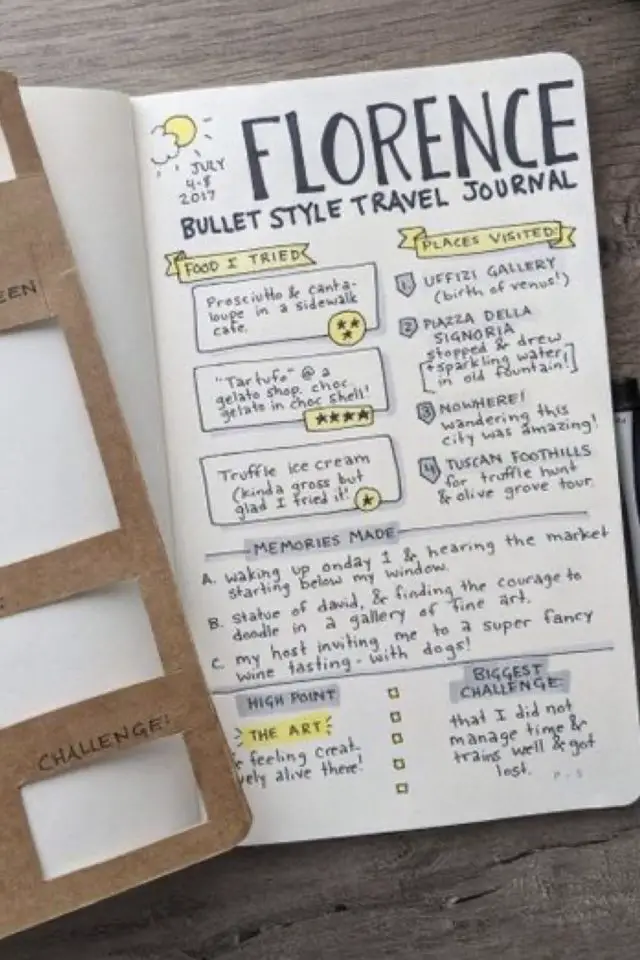 FLORENCE
JULY
4-8
2017
BULLET STYLE TRAVEL JOURNAL
FOOD I TRIED
Prosciutto & canta-
loupe in a sidewalk
cafe.
"Tartufo" @ a
gelato shop. choc
gelato in choc shell!
Truffle ice cream
(kinda gross but
glad I tried it!
PLACES VISITED:
1. UFFIZI GALLERY
(birth of venus!)
2 PIAZZA DELLA
SIGNORIA
stopped & drew
[+sparkling water
in old fountain!]
3 NOWHERE!
wandering this
city was amazing!
4 TUSCAN FOOTHILLS
for truffle hunt
& olive grove tour.
MEMORIES MADE
A. waking up onday 1 & hearing the market
starting below my window.
B. statue of david, & finding the courage to
doodle in a gallery of fine art.
C. my host inviting me to a super fancy
wine tasting - with dogs!
HIGH POINT
THE ART
& feeling creat
vely alive there!
BIGGEST
CHALLENGE:
that I did not
manage time &
trains well & got
lost.
EEN
CHALLENGE!